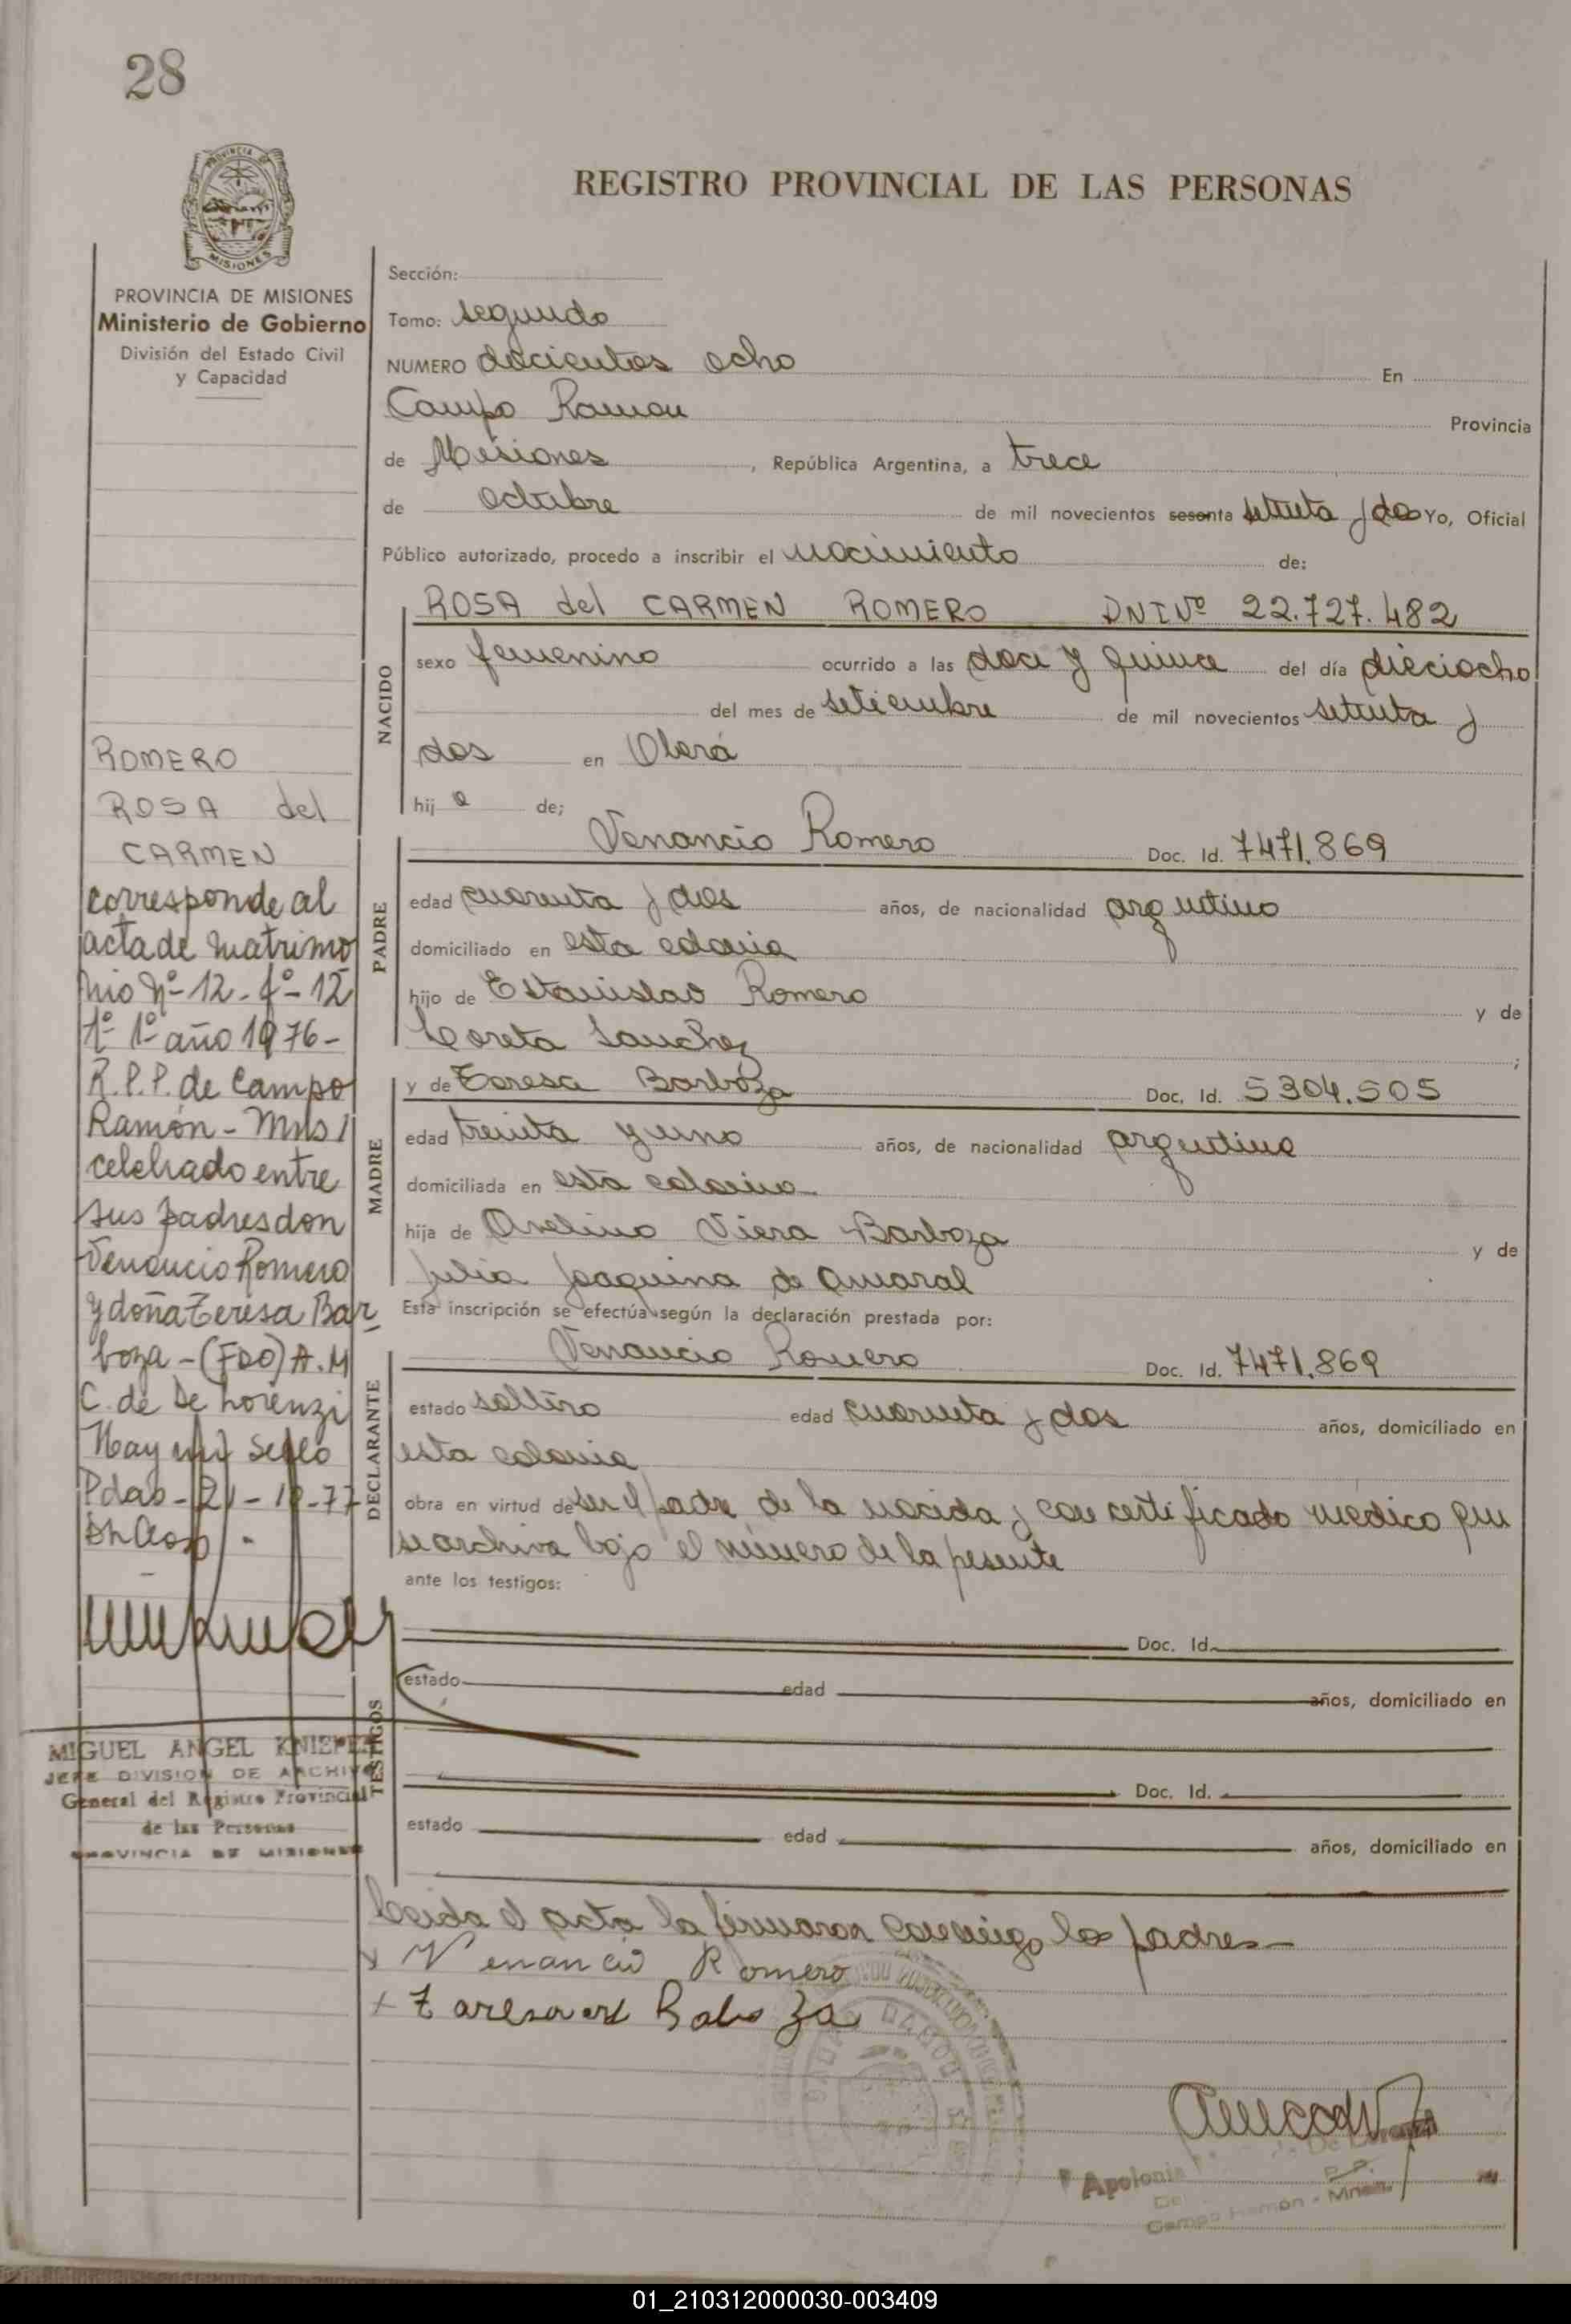 28
REGISTRO PROVINCIAL DE LAS PERSONAS
PROVINCIA DE MISIONES
PROVINCIA DE MISIONES
Ministerio de Gobierno
División del Estado Civil
y Capacidad
ROMERO
ROSA del
CARMEN
corresponde al
acta de matrimo
nio Nº 12 - fº - 12
Tº 1º año 1976 -
R.P.P. de Campo
Ramón - Mns /
celebrado entre
sus padres don
Venancio Romero
y doña Teresa Bar
boza - (FDO) A.M
C. de De Lorenzi
Hay un sello
Pdas - 21 - 10 - 77
MIGUEL ANGEL KNIEPE
JEFE DIVISION DE ARCHIVO
General del Registro Provincial
de las Personas
PROVINCIA DE MISIONES
Sección:
Tomo: segundo
NUMERO docientos ocho En
Campo Ramon Provincia
de Misiones, República Argentina, a trece
de octubre de mil novecientos sesenta setenta y dos Yo, Oficial
Público autorizado, procedo a inscribir el nacimiento de:
NACIDO
ROSA del CARMEN ROMERO DNI Nº 22.727.482
sexo femenino ocurrido a las doce y quince del día dieciocho
del mes de setiembre de mil novecientos setenta y
dos en Oberá
hij a de;
PADRE
Venancio Romero Doc. Id. 7471.869
edad cuarenta y dos años, de nacionalidad argentino
domiciliado en esta colonia
hijo de Estanislao Romero y de
Loreta Sanchez;
MADRE
y de Teresa Barboza Doc. Id. 5304.505
edad treinta y uno años, de nacionalidad argentina
domiciliada en esta colonia
hija de Avelino Viera Barboza y de
Julia Joaquina de Amaral
Esta inscripción se efectúa según la declaración prestada por:
DECLARANTE
Venancio Romero Doc. Id. 7471.869
estado soltero edad cuarenta y dos años, domiciliado en
esta colonia
obra en virtud de ser el padre de la nacida y con certificado médico que
se archiva bajo el número de la presente
ante los testigos:
TESTIGOS
Doc. Id.
estado edad años, domiciliado en
Doc. Id.
estado edad años, domiciliado en
Leida el acta la firmaron conmigo los padres
x Venancio Romero
x
Apolonia De Lorenzi
Campo Ramón - Mnes.
01_210312000030-003409